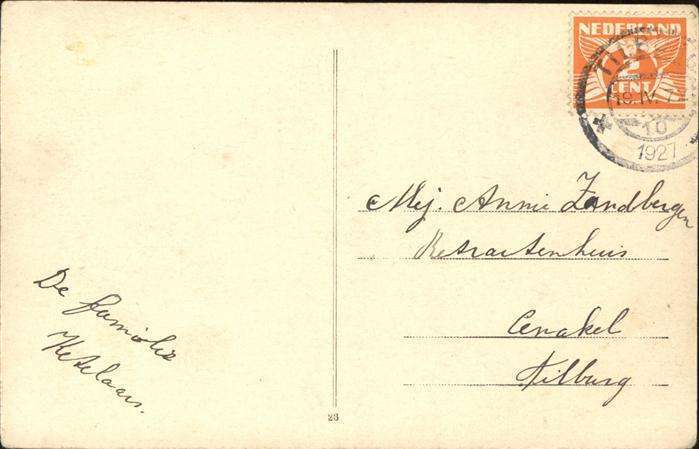 NEDERLAND
CENT
TILB
19.IV
10
1927
Mej. Annie Zandbergen
Retraitenhuis
Cenakel
Tilburg
De familie
Ketelaars.
23